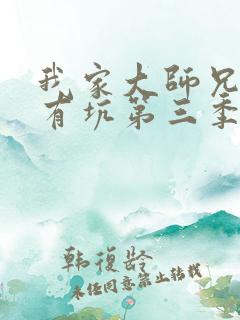 我家大师兄
有坑第三季
韩復龄
未经同意禁止转载